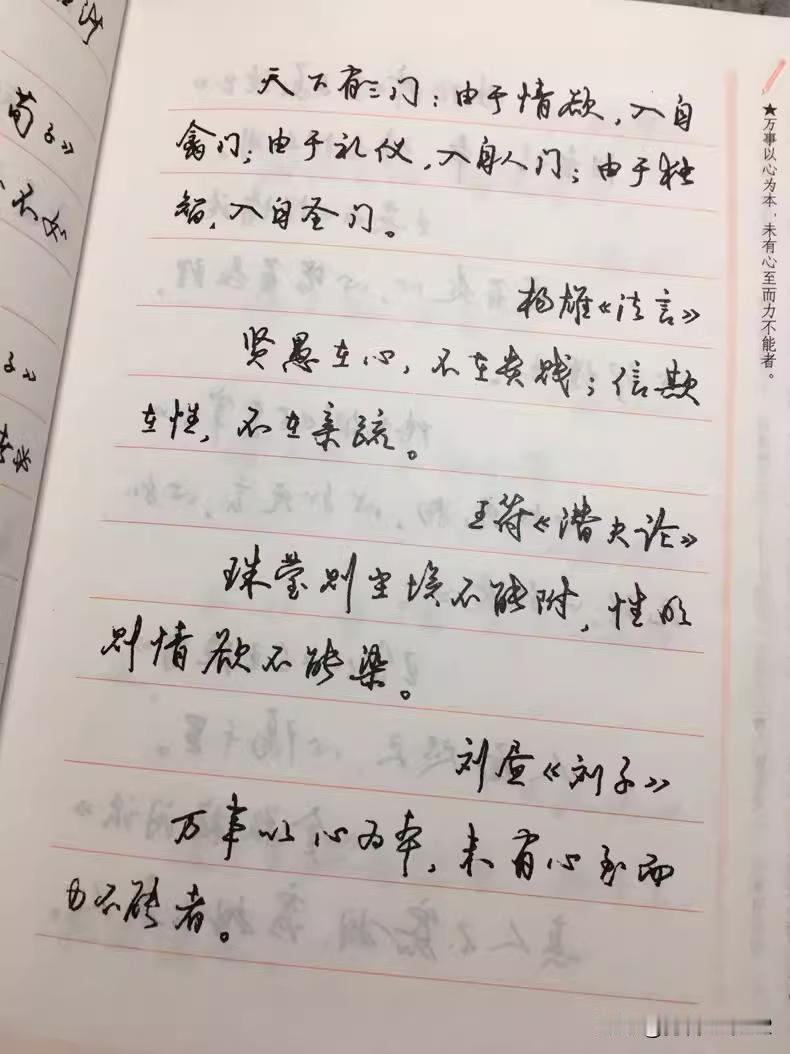 天下有三门：由于情欲，入自
禽门；由于礼仪，入自人门；由于独
智，入自圣门。
杨雄《法言》
贤愚在心，不在贵贱；信欺
在性，不在亲疏。
王符《潜夫论》
珠莹则尘埃不能附，性明
则情欲不能染。
刘昼《刘子》
万事以心为本，未有心至而
力不能者。
★万事以心为本，未有心至而力不能者。
荀子》
不如
子》